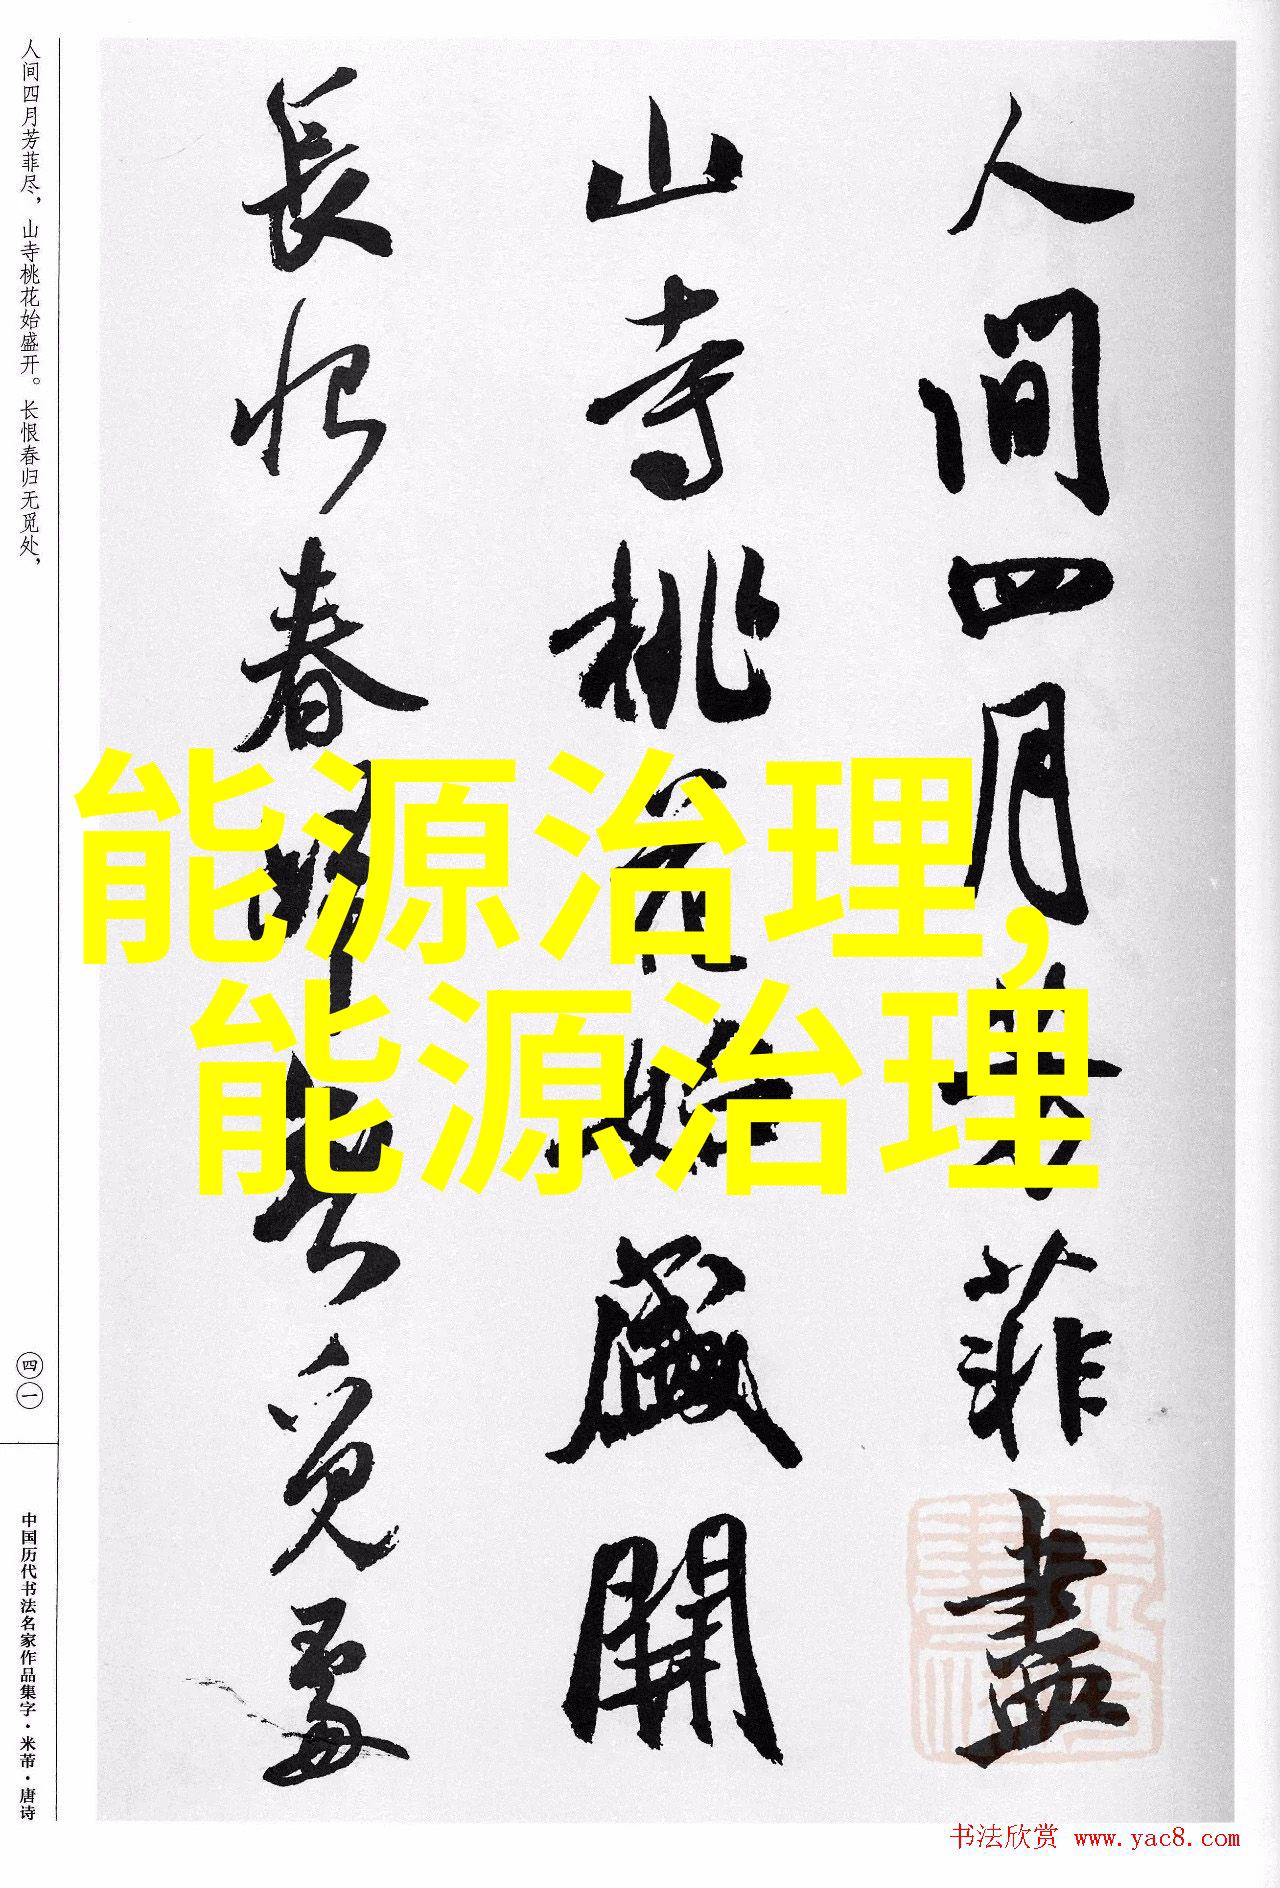 人间四月芳菲尽，山寺桃花始盛开。长恨春归无觅处，
四一
中国历代书法名家作品集字·米芾·唐诗
人間四月芳菲盡
山寺桃花始盛開
長恨春歸無覓處
能源治理，
能源治理
书法欣赏 www.yac8.com